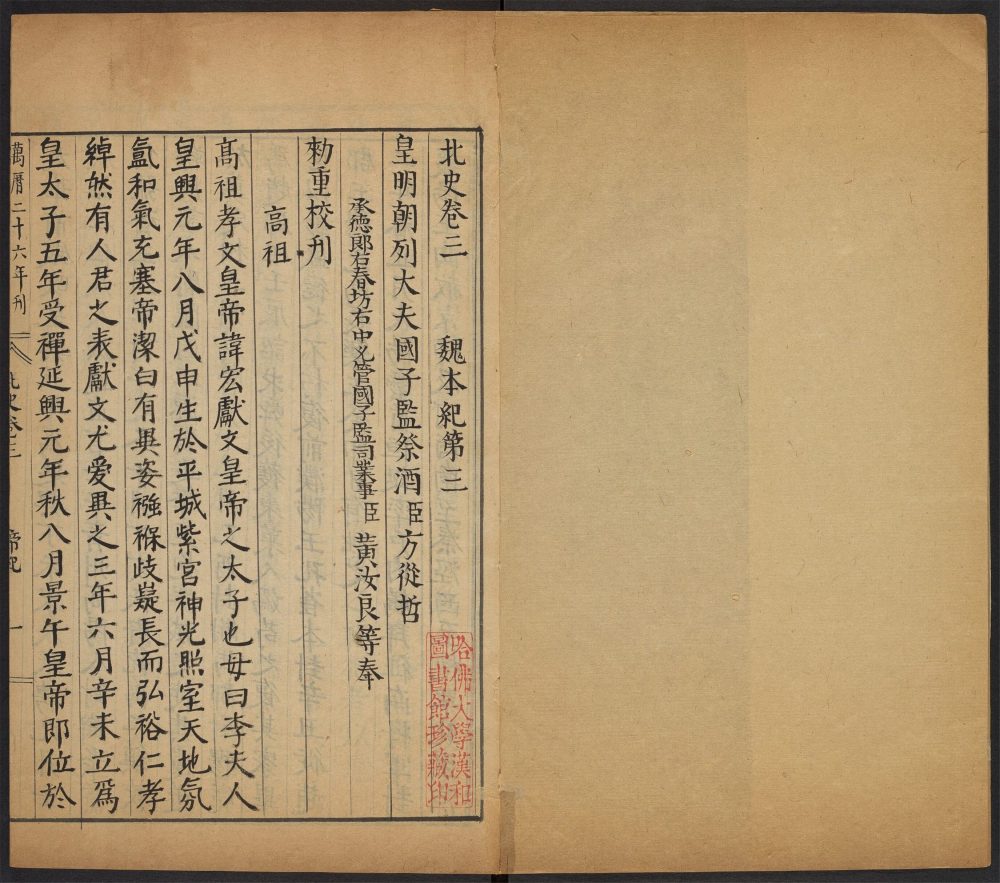 北史卷三　魏本紀第三
皇明朝列大夫國子監祭酒臣方從哲
承德郎右春坊右中允管國子監司業事臣黃汝良等奉
勑重校刋
高祖
高祖孝文皇帝諱宏獻文皇帝之太子也母曰李夫人
皇興元年八月戊申生於平城紫宮神光照室天地氛
氳和氣充塞帝潔白有異姿襁褓歧嶷長而弘裕仁孝
綽然有人君之表獻文尤愛異之三年六月辛未立爲
皇太子五年受禪延興元年秋八月景午皇帝即位於
萬曆二十六年刋
北史卷三　帝紀　一
哈佛大學漢和
圖書館珍藏印